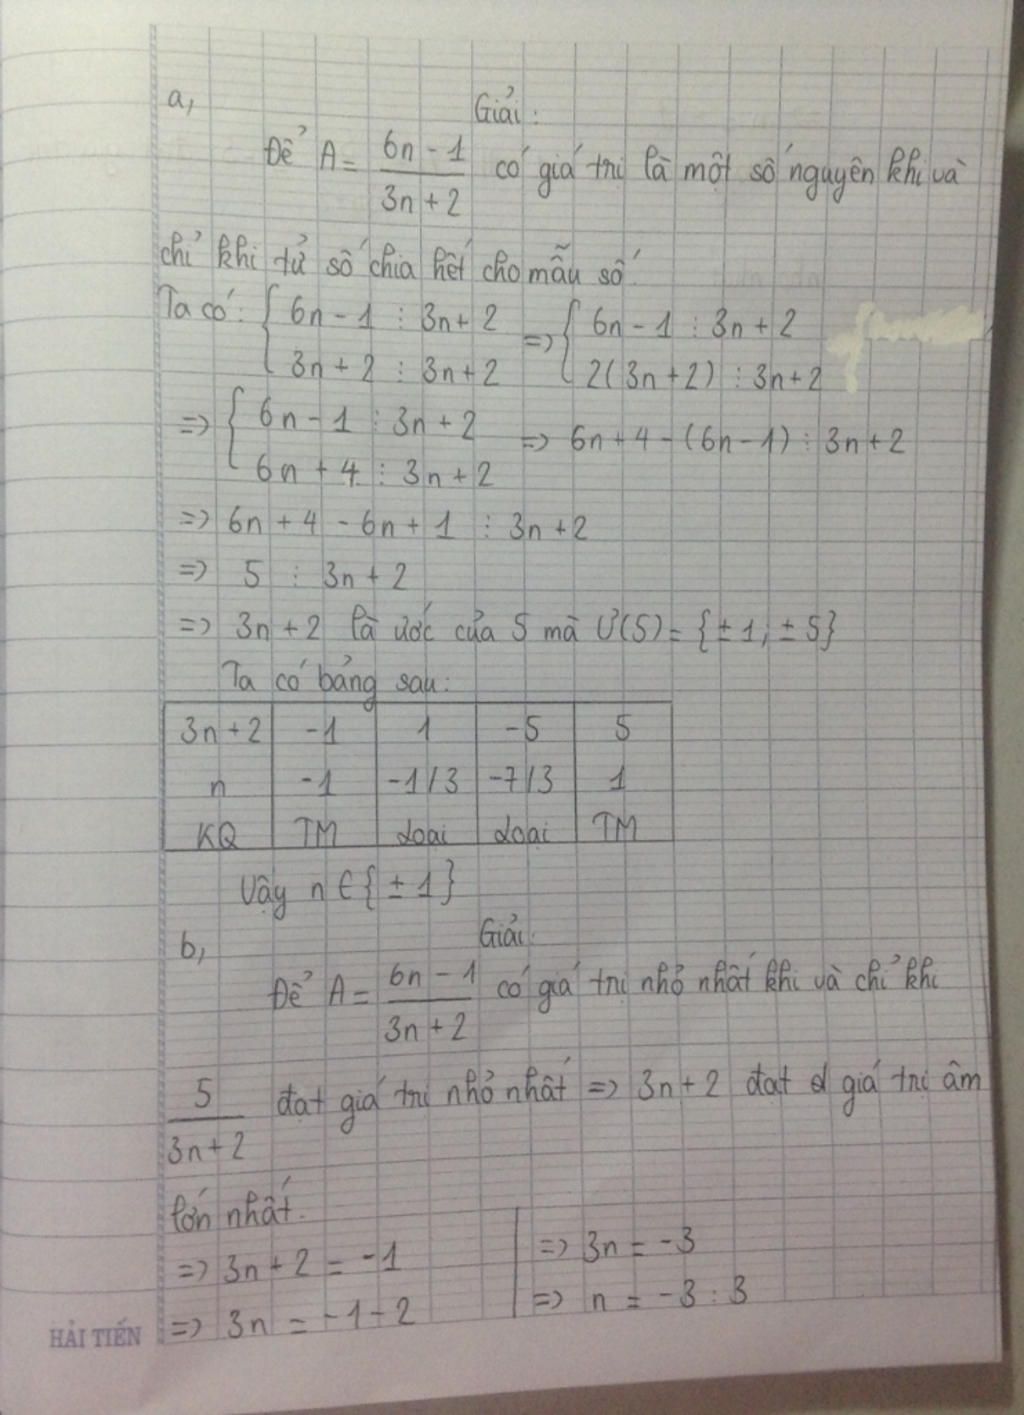 a,
Giải:
Để A = 6n - 1 / 3n + 2 có giá trị là một số nguyên khi và
chỉ khi tử số chia hết cho mẫu số.
Ta có: { 6n - 1 ⋮ 3n + 2 => { 6n - 1 ⋮ 3n + 2
3n + 2 ⋮ 3n + 2 2(3n + 2) ⋮ 3n + 2
=> { 6n - 1 ⋮ 3n + 2 => 6n + 4 - (6n - 1) ⋮ 3n + 2
6n + 4 ⋮ 3n + 2
=> 6n + 4 - 6n + 1 ⋮ 3n + 2
=> 5 ⋮ 3n + 2
=> 3n + 2 là ước của 5 mà Ư(5) = {± 1; ± 5}
Ta có bảng sau:
3n + 2 -1 1 -5 5
n -1 -1/3 -7/3 1
KQ TM Loại Loại TM
Vậy n ∈ {± 1}
b,
Giải:
Để A = 6n - 1 / 3n + 2 có giá trị nhỏ nhất khi và chỉ khi
5 / 3n + 2 đạt giá trị nhỏ nhất => 3n + 2 đạt giá trị âm
lớn nhất.
=> 3n + 2 = -1
=> 3n = -1 - 2
=> 3n = -3
=> n = -3 : 3
HẢI TIẾN